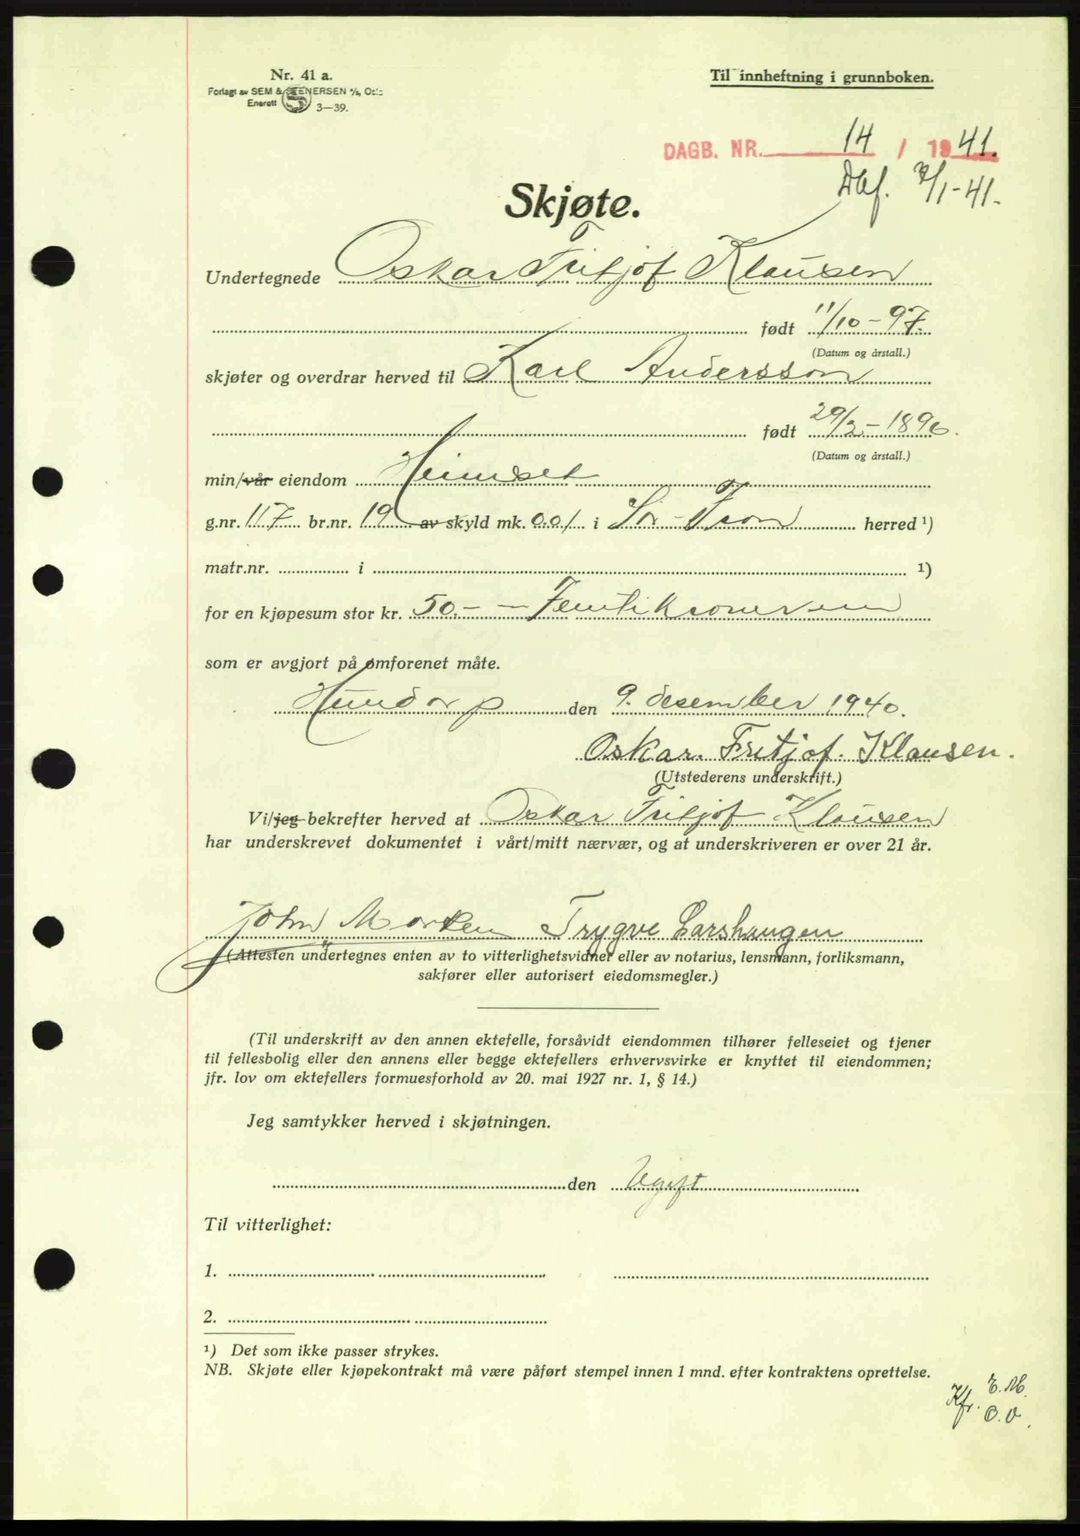 Nr. 41 a.
Forlagt av SEM & STENERSEN A/S, Oslo
Enerett 3—39.
Til innheftning i grunnboken.
DAGB. NR. 14 / 1941.
Dbf. 7/1-41.
Skjøte.
Undertegnede Oskar Fritjof Klausen
født 11/10-97.
(Datum og årstall.)
skjøter og overdrar herved til Karl Andersson
født 29/2-1896.
(Datum og årstall.)
min/vår eiendom Heimset
g.nr. 117 br.nr. 19 av skyld mk. 0.01 i Sør-Fron herred ¹)
matr.nr. i ¹)
for en kjøpesum stor kr. 50.- - Femti kroner
som er avgjort på omforenet måte.
Hundorp den 9. desember 1940.
Oskar. Fritjof. Klausen.
(Utstederens underskrift.)
Vi/jeg bekrefter herved at Oskar Fritjof Klausen
har underskrevet dokumentet i vårt/mitt nærvær, og at underskriveren er over 21 år.
John Morken Trygve Larshaugen
(Attesten undertegnes enten av to vitterlighetsvidner eller av notarius, lensmann, forliksmann,
sakfører eller autorisert eiedomsmegler.)
(Til underskrift av den annen ektefelle, forsåvidt eiendommen tilhører felleseiet og tjener
til fellesbolig eller den annens eller begge ektefellers erhvervsvirke er knyttet til eiendommen;
jfr. lov om ektefellers formuesforhold av 20. mai 1927 nr. 1, § 14.)
Jeg samtykker herved i skjøtningen.
den Ugift
Til vitterlighet:
1.
2.
¹) Det som ikke passer strykes.
NB. Skjøte eller kjøpekontrakt må være påført stempel innen 1 mnd. efter kontraktens oprettelse.
Kfr. E.M.
O.O.